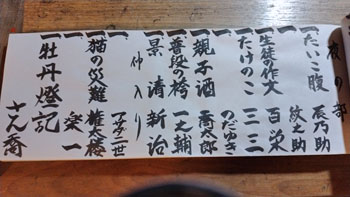 夜の部
一 たいこ腹 辰乃助
一 牧之助
一 生徒の作文 百栄
一 たけのこ 三三
一 のだゆき
一 親子酒 喬太郎
一 普段の袴 一之輔
一 景清 新治
仲入り
一 アサダ二世
一 猫の災難 雄太楼
一 楽一
一 牡丹燈記 さん喬